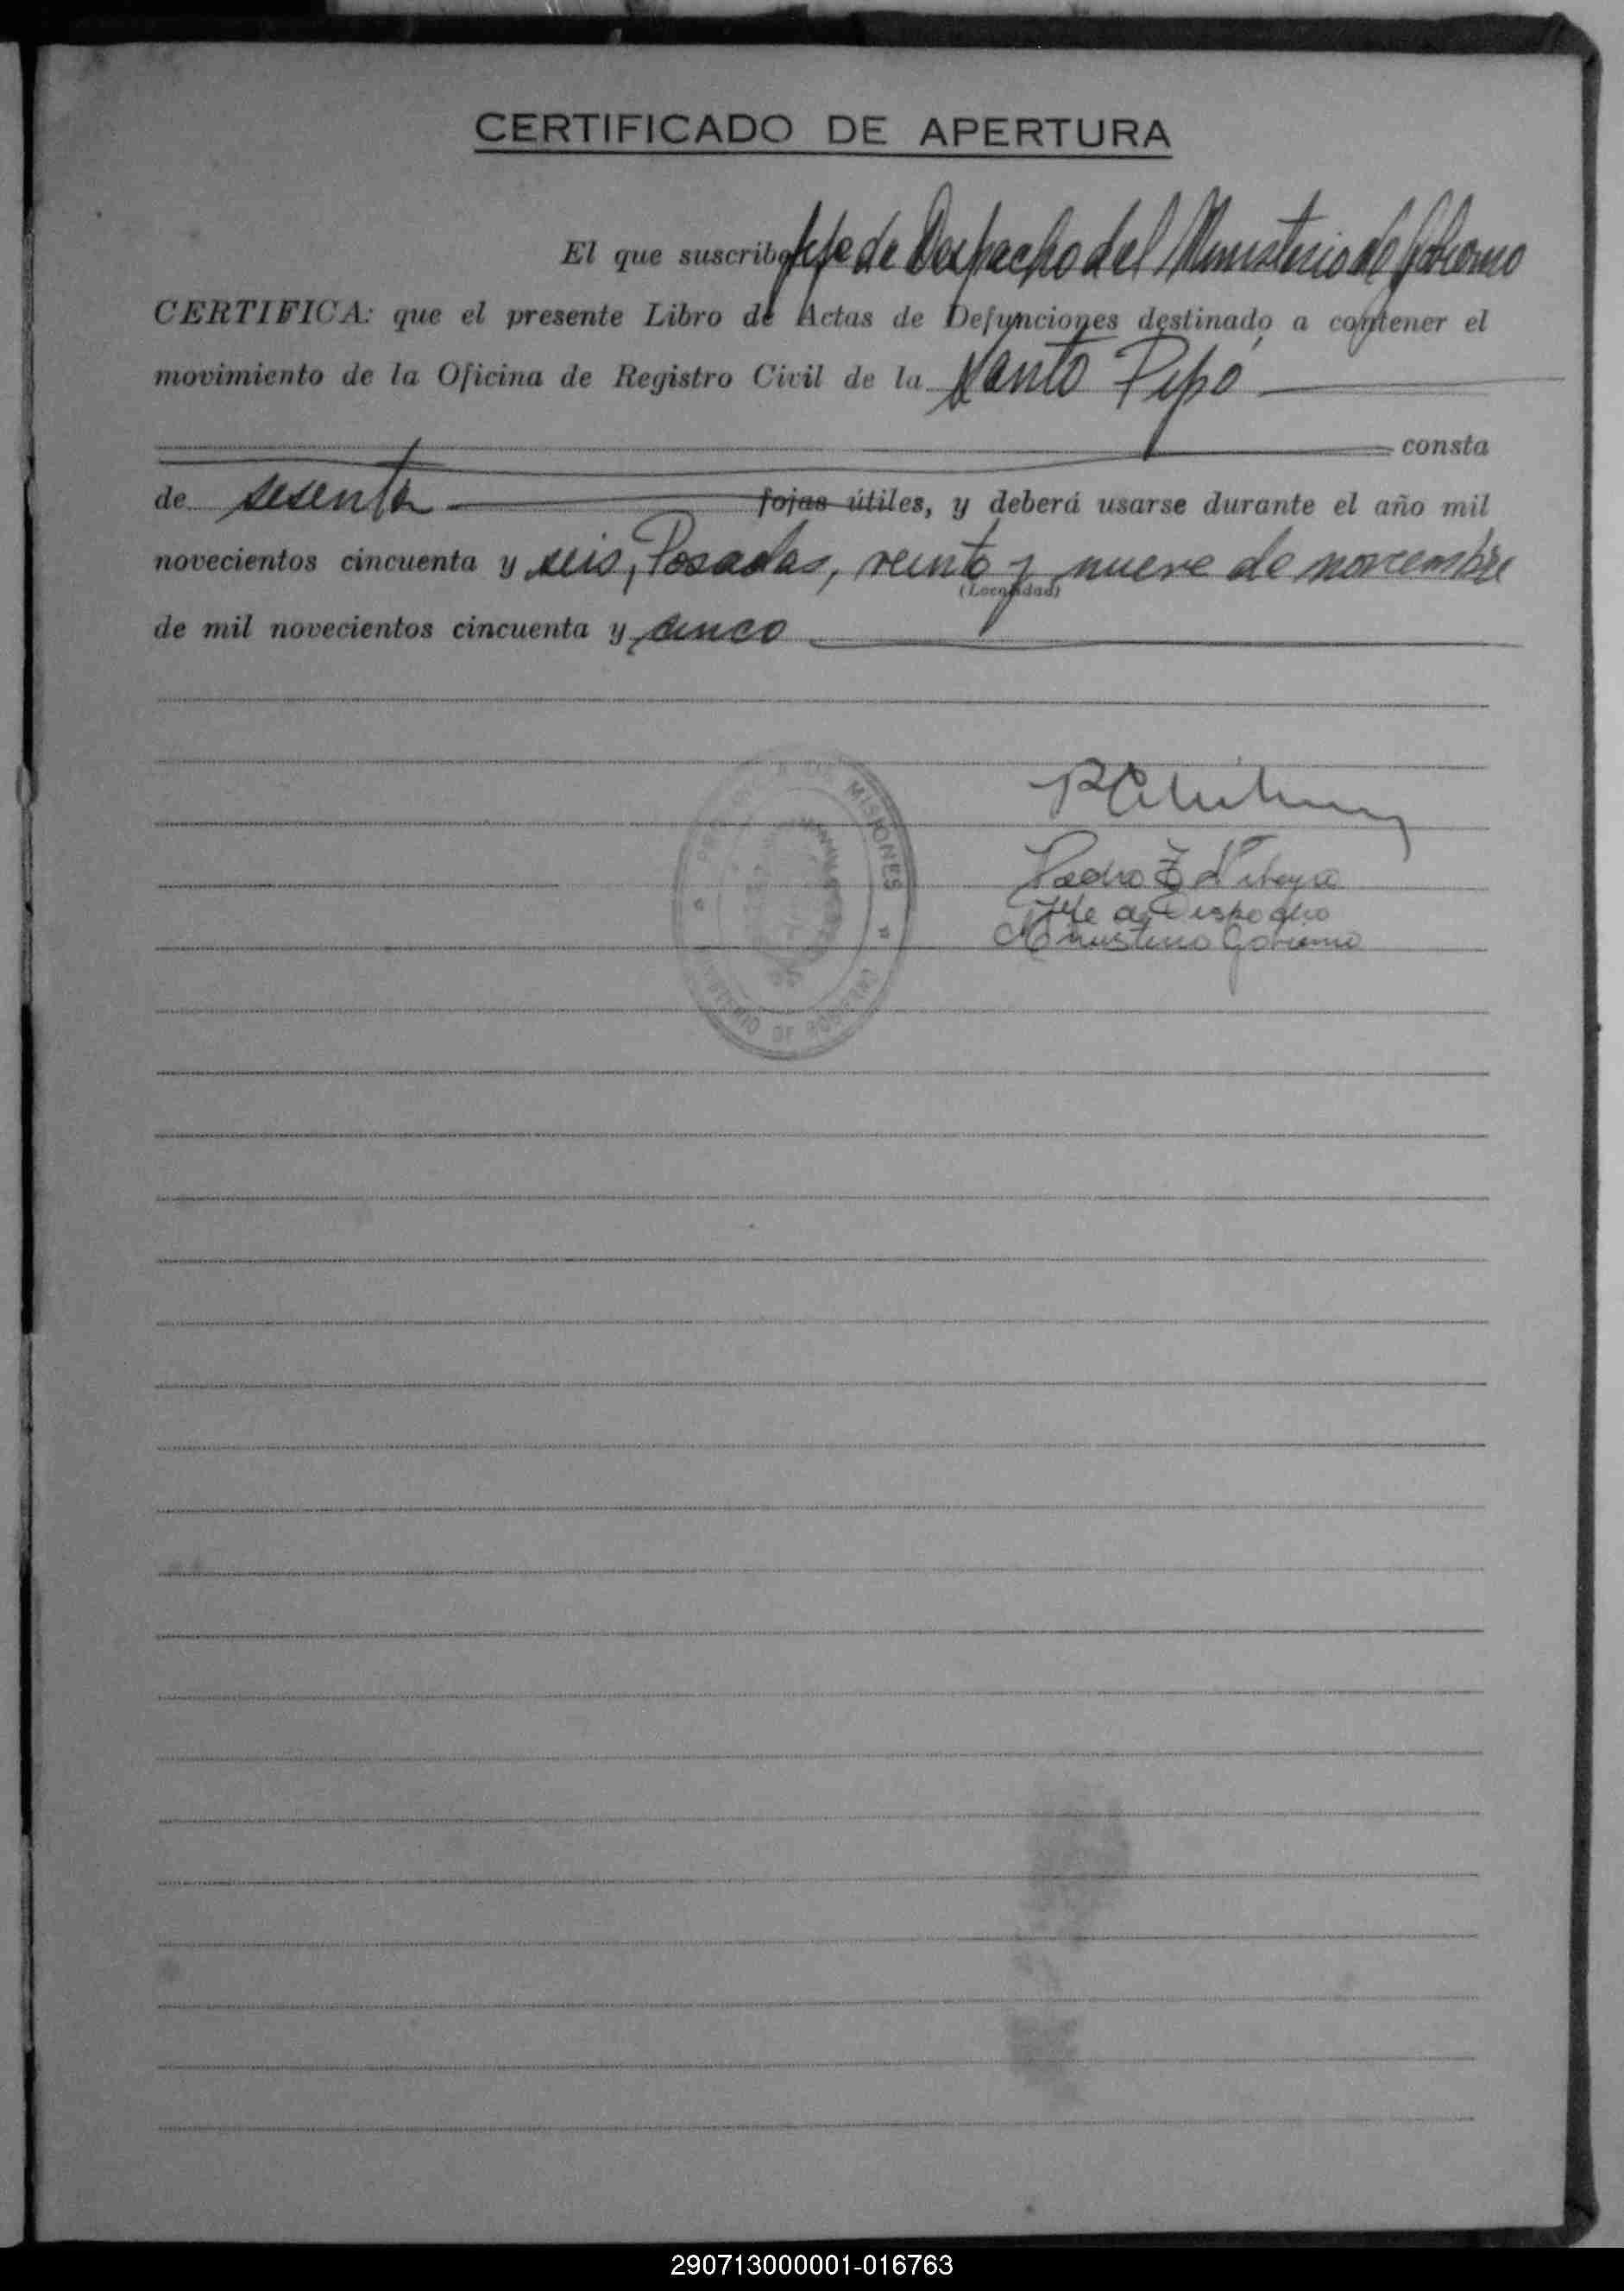 CERTIFICADO DE APERTURA
El que suscribe Jefe de Despacho del Ministerio de Gobierno
CERTIFICA: que el presente Libro de Actas de Defunciones destinado a contener el
movimiento de la Oficina de Registro Civil de la Santo Pipó
consta
de sesenta fojas útiles, y deberá usarse durante el año mil
novecientos cincuenta y seis, Posadas, veinte y nueve de noviembre
(Localidad)
de mil novecientos cincuenta y cinco
MISIONES
Pedro
Jefe de Despacho
Ministerio Gobierno
DE
290713000001-016763